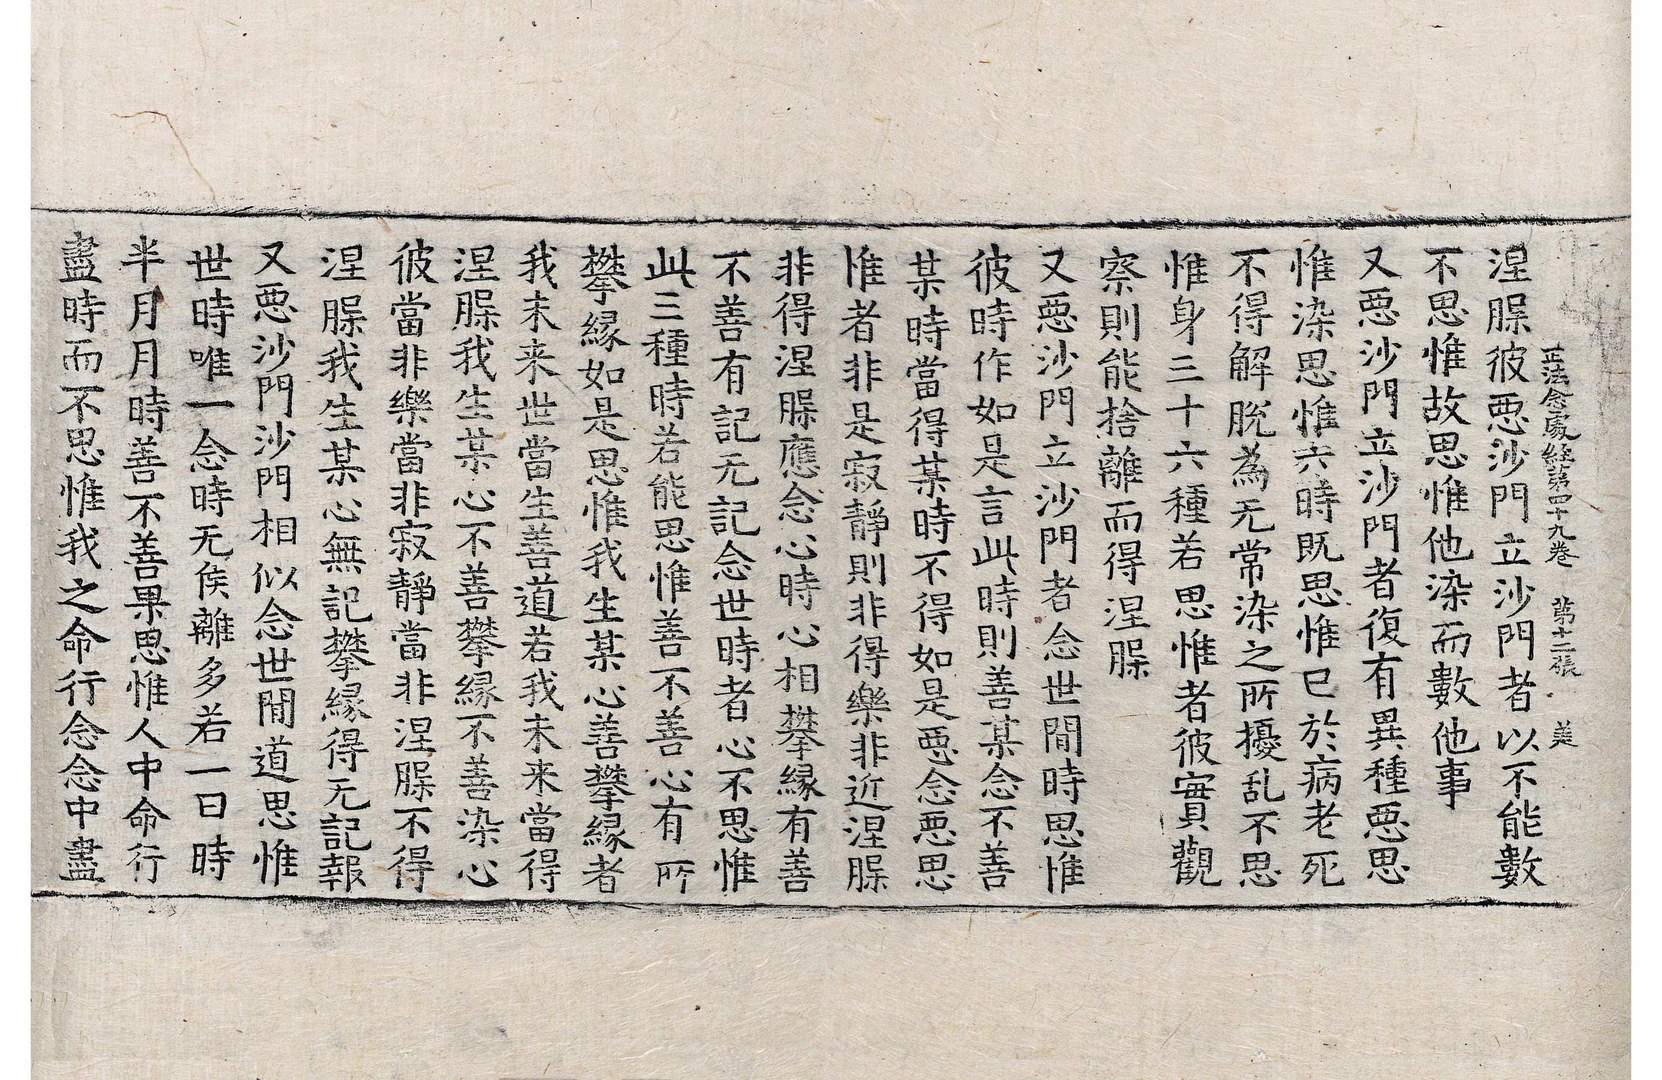 正法念處經第四十九卷　第十二張　美
涅槃彼悪沙門立沙門者以不能數
不思惟故思惟他染而數他事
又悪沙門立沙門者復有異種悪思
惟染思惟六時既思惟已於病老死
不得解脫為无常染之所擾乱不思
惟身三十六種若思惟者彼實觀
察則能捨離而得涅槃
又悪沙門立沙門者念世間時思惟
彼時作如是言此時則善某念不善
某時當得某時不得如是悪念悪思
惟者非是寂靜則非得樂非近涅槃
非得涅槃應念心時心相攀縁有善
不善有記无記念世時者心不思惟
此三種時若能思惟善不善心有所
攀縁如是思惟我生某心善攀縁者
我未来世當生善道若我未来當得
涅槃我生某心不善攀縁不善染心
彼當非樂當非寂靜當非涅槃不得
涅槃我生某心無記攀縁得无記報
又悪沙門沙門相似念世間道思惟
世時唯一念時无侯離多若一日時
半月月時善不善果思惟人中命行
盡時而不思惟我之命行念念中盡